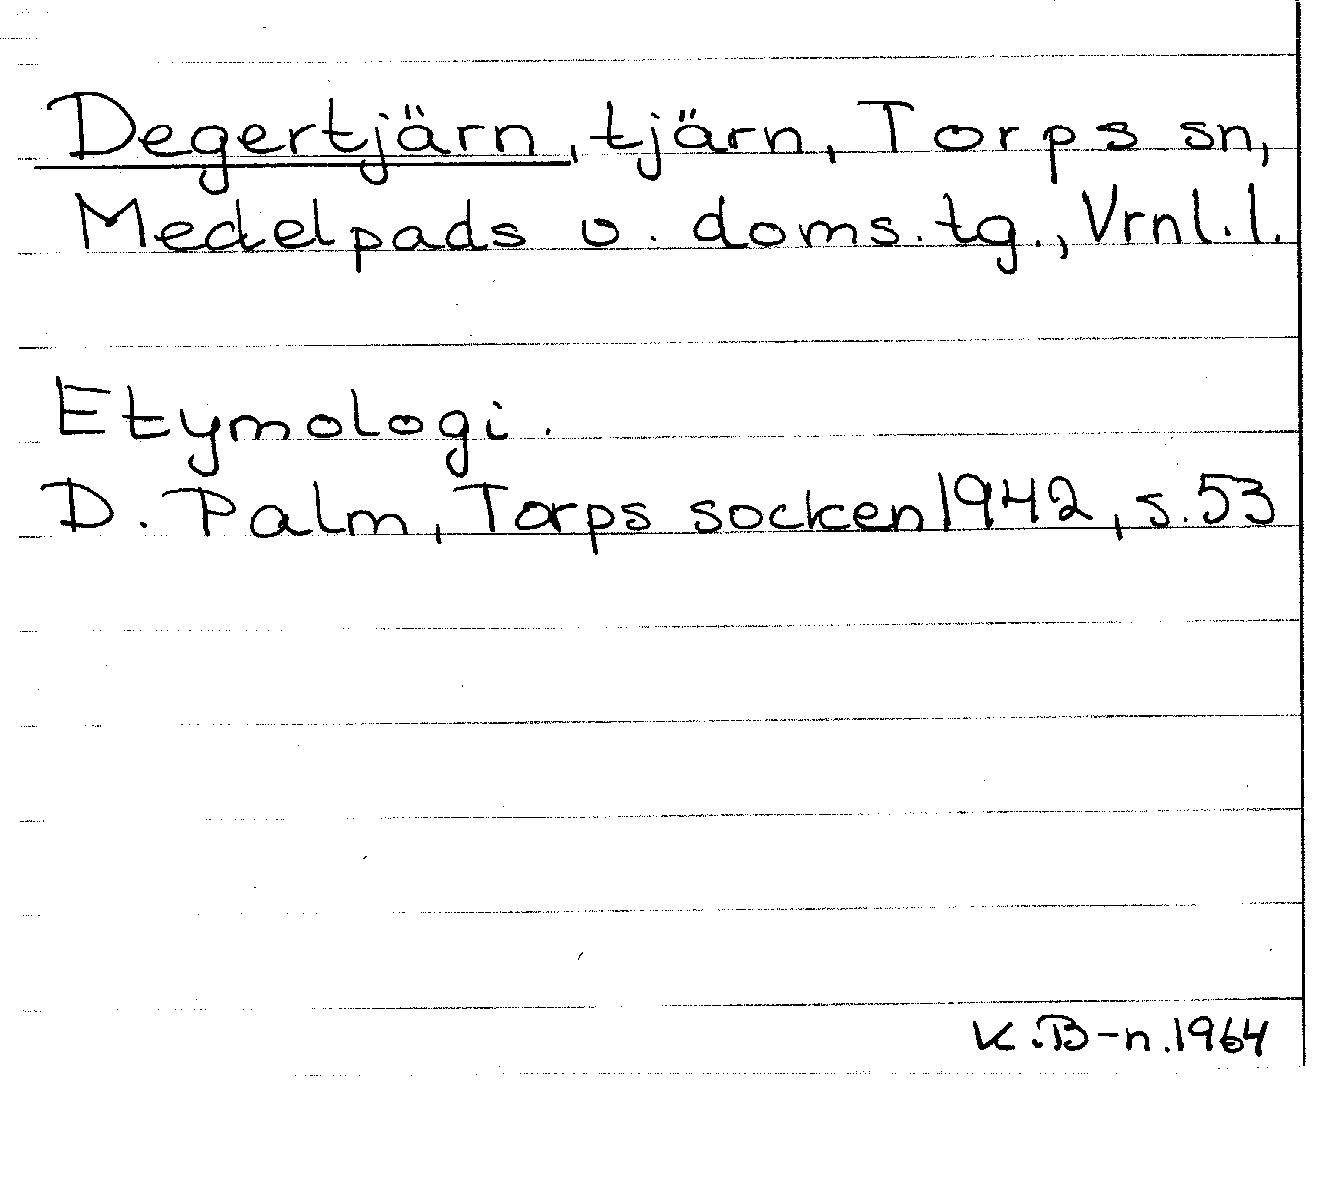 Degertjärn, tjärn, Torps sn,
Medelpads v. doms.tg., Vrnl.l.
Etymologi.
D. Palm, Torps socken 1942, s. 53
K.B-n. 1964